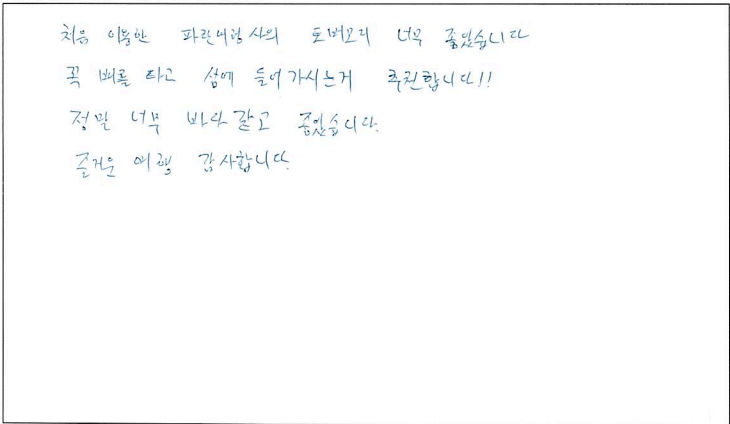 처음 이용한 파란여행사의 토버모리 너무 좋았습니다
꼭 배를 타고 섬에 들어가시는거 추천합니다!!
정말 너무 바다같고 좋았습니다.
즐거운 여행 감사합니다.